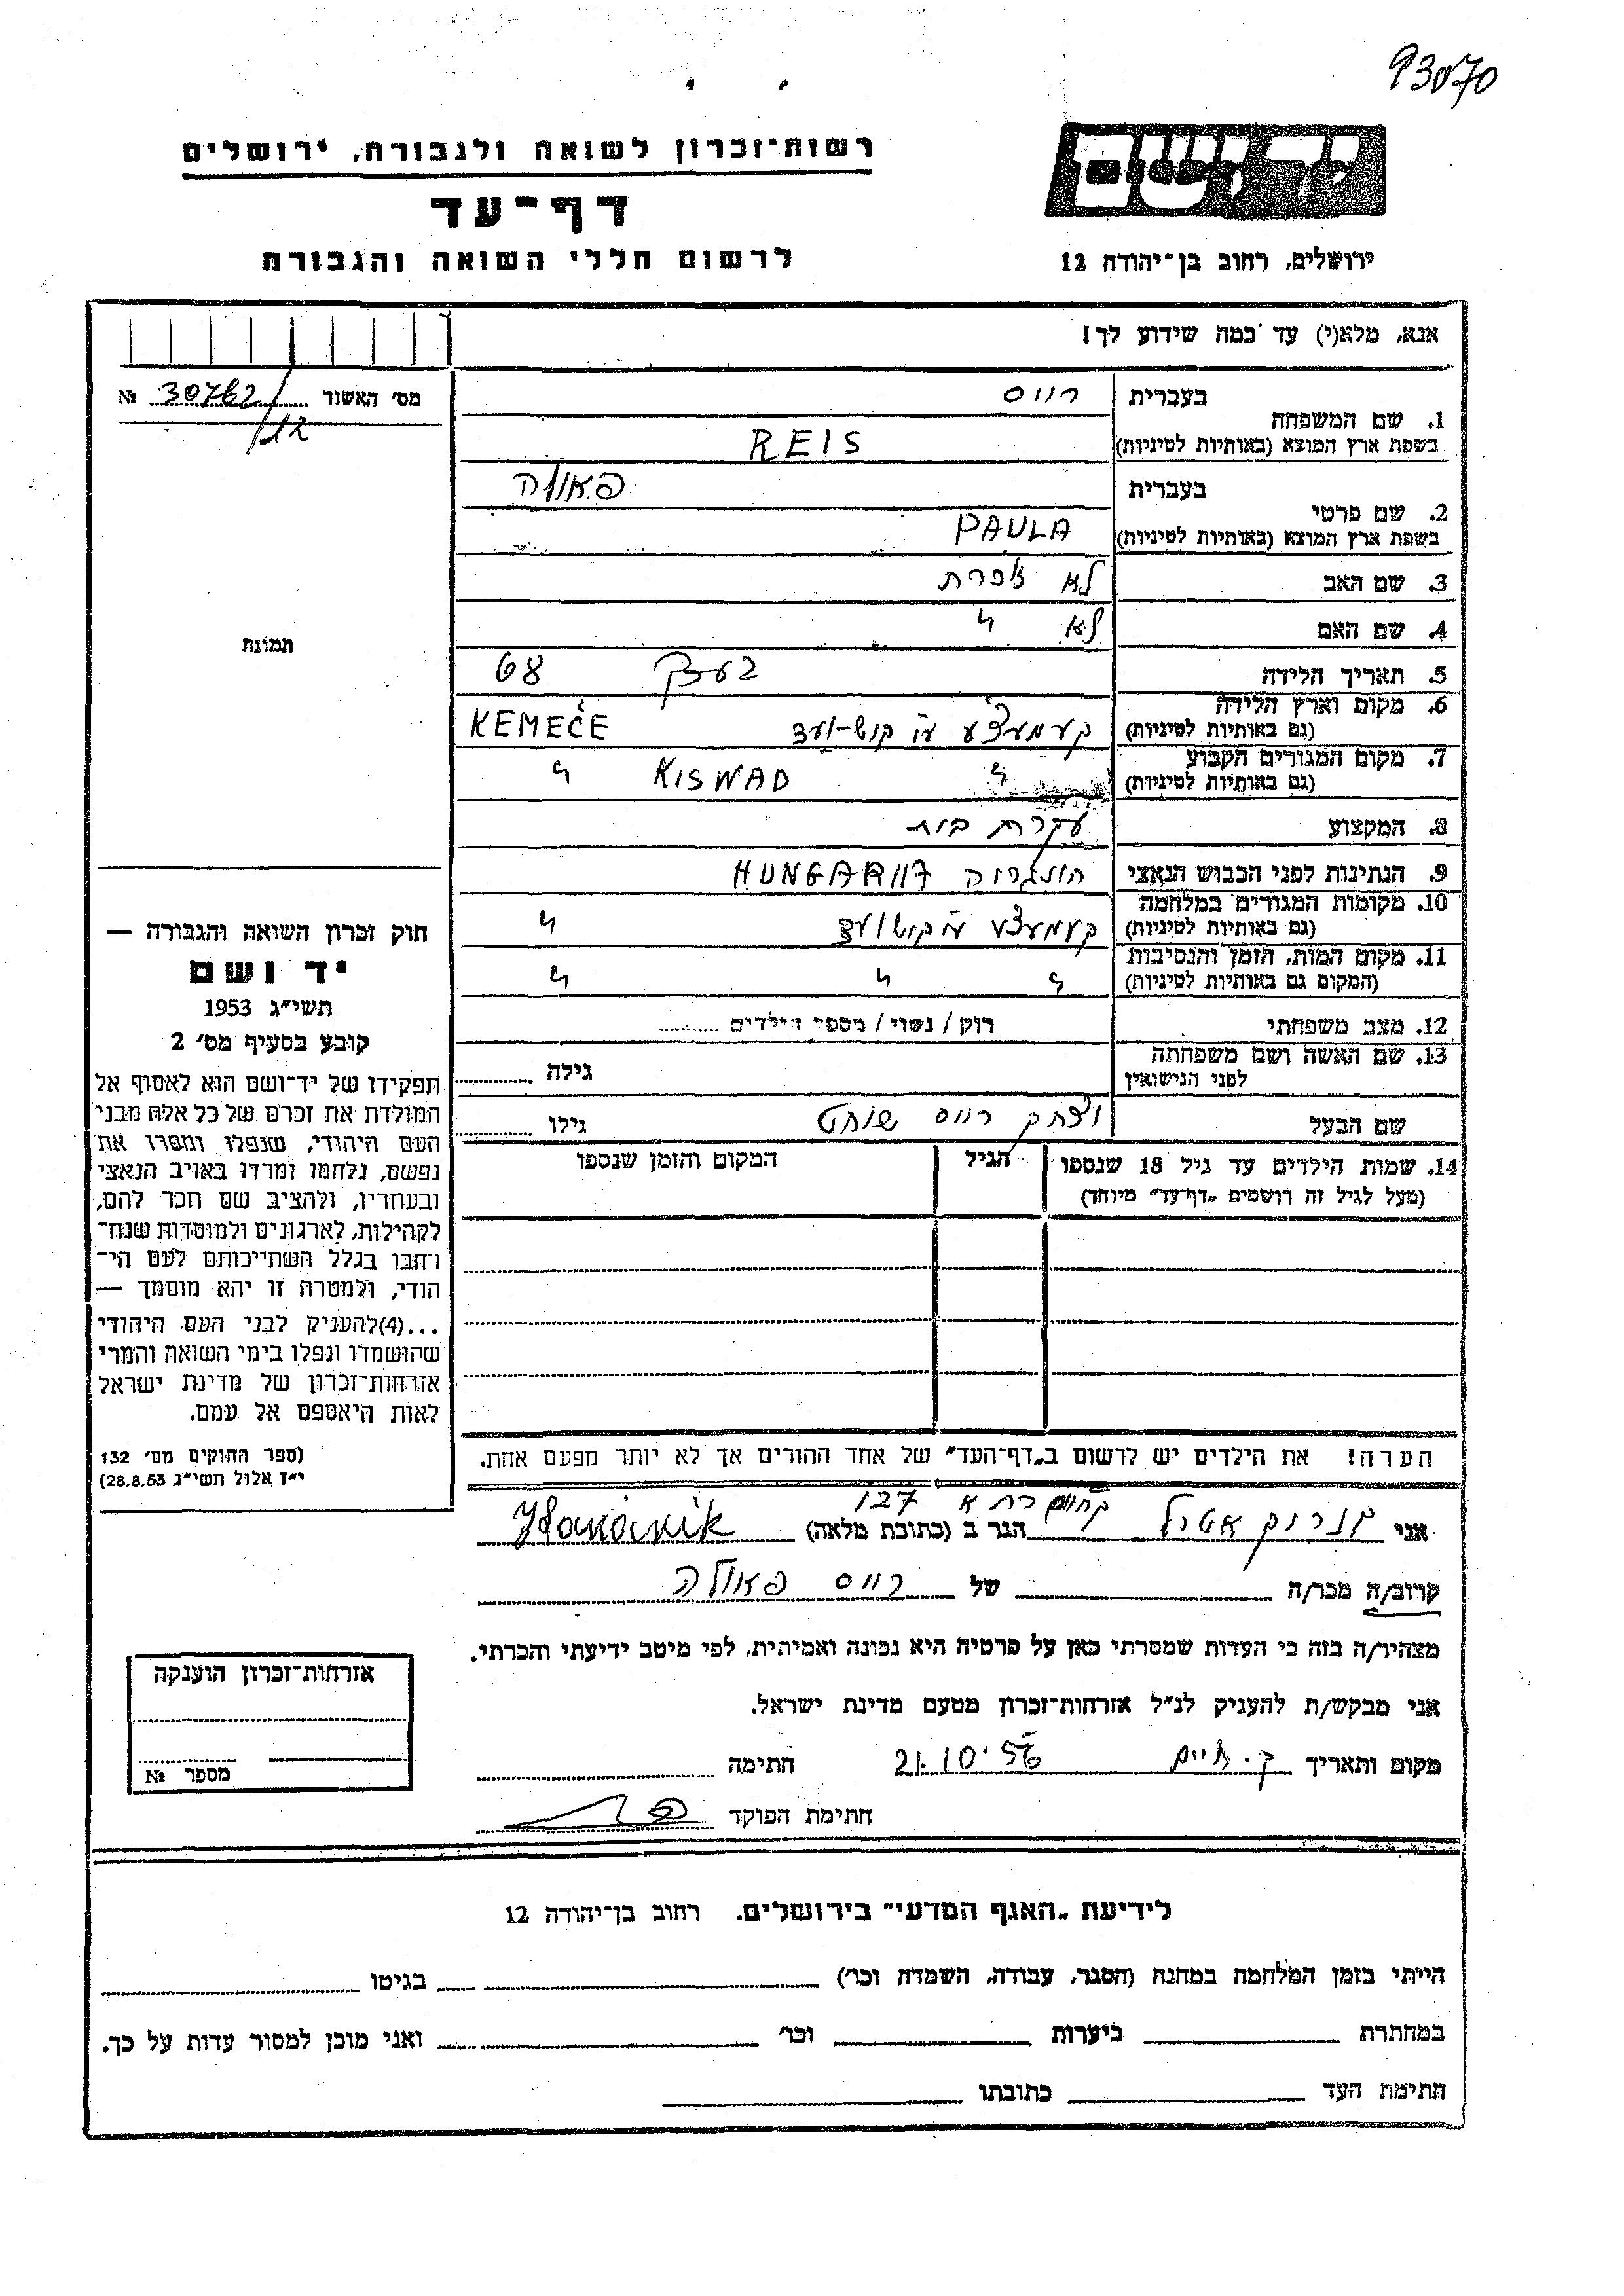 93070
ידושם
רשות־זכרון לשואה ולגבורה. ירושלים
דף־עד
לרשום חללי השואה והגבורה
ירושלים, רחוב בן־יהודה 12
אנא, מלא(י) עד כמה שידוע לך!
מס׳ האשור 30762/12 №
1. שם המשפחה
בעברית רייס
בשפת ארץ המוצא (באותיות לטיניות) REIS
2. שם פרטי
בעברית פאולה
בשפת ארץ המוצא (באותיות לטיניות) PAULA
3. שם האב לא
4. שם האם לא "
5. תאריך הלידה בערך 68
6. מקום וארץ הלידה
(גם באותיות לטיניות) KEMEČE
7. מקום המגורים הקבוע
(גם באותיות לטיניות) " KISWAD "
8. המקצוע עקרת בית
9. הנתינות לפני הכבוש הנאצי הונגריה HUNGARIJA
10. מקומות המגורים במלחמה
(גם באותיות לטיניות) "
11. מקום המות, הזמן והנסיבות
(המקום גם באותיות לטיניות) " " "
12. מצב משפחתי רוק / נשוי / מספר הילדים
13. שם האשה ושם משפחתה
לפני הנישואין גילה
שם הבעל יצחק רייס שוחט גילו
14. שמות הילדים עד גיל 18 שנספו
(מעל לגיל זה רושמים „דף־עד״ מיוחד)
הגיל
המקום והזמן שנספו
תמונה
חוק זכרון השואה והגבורה —
יד ושם
תשי״ג 1953
קובע בסעיף מס׳ 2
תפקידו של יד־ושם הוא לאסוף אל
המולדת את זכרם של כל אלה מבני
העם היהודי, שנפלו ומסרו את
נפשם, נלחמו ומרדו באויב הנאצי
ובעוזריו, ולהציב שם וזכר להם,
לקהילות, לארגונים ולמוסדות שנח־
רבו בגלל השתייכותם לעם הי־
הודי, ולמטרה זו יהא מוסמך —
...(4)להעניק לבני העם היהודי
שהושמדו ונפלו בימי השואה והמרי
אזרחות־זכרון של מדינת ישראל
לאות היאספם אל עמם.
(ספר החוקים מס׳ 132
י״ז אלול תשי״ג 28.8.53)
הערה! את הילדים יש לרשום ב„דף־העד״ של אחד ההורים אך לא יותר מפעם אחת.
אני הגר ב (כתובת מלאה) 127
קרוב/ה מכר/ה של רייס פאולה
מצהיר/ה בזה כי העדות שמסרתי כאן על פרטיה היא נכונה ואמיתית, לפי מיטב ידיעתי והכרתי.
אני מבקש/ת להעניק לנ״ל אזרחות־זכרון מטעם מדינת ישראל.
מקום ותאריך ק. חיים 21.10.56 חתימה
חתימת הפוקד
אזרחות־זכרון הוענקה
מספר №
לידיעת „האגף המדעי״ בירושלים. רחוב בן־יהודה 12
הייתי בזמן המלחמה במחנה (הסגר, עבודה, השמדה וכר׳) בגיטו
במחתרת ביערות וכר׳ ואני מוכן למסור עדות על כך.
חתימת העד כתובתו